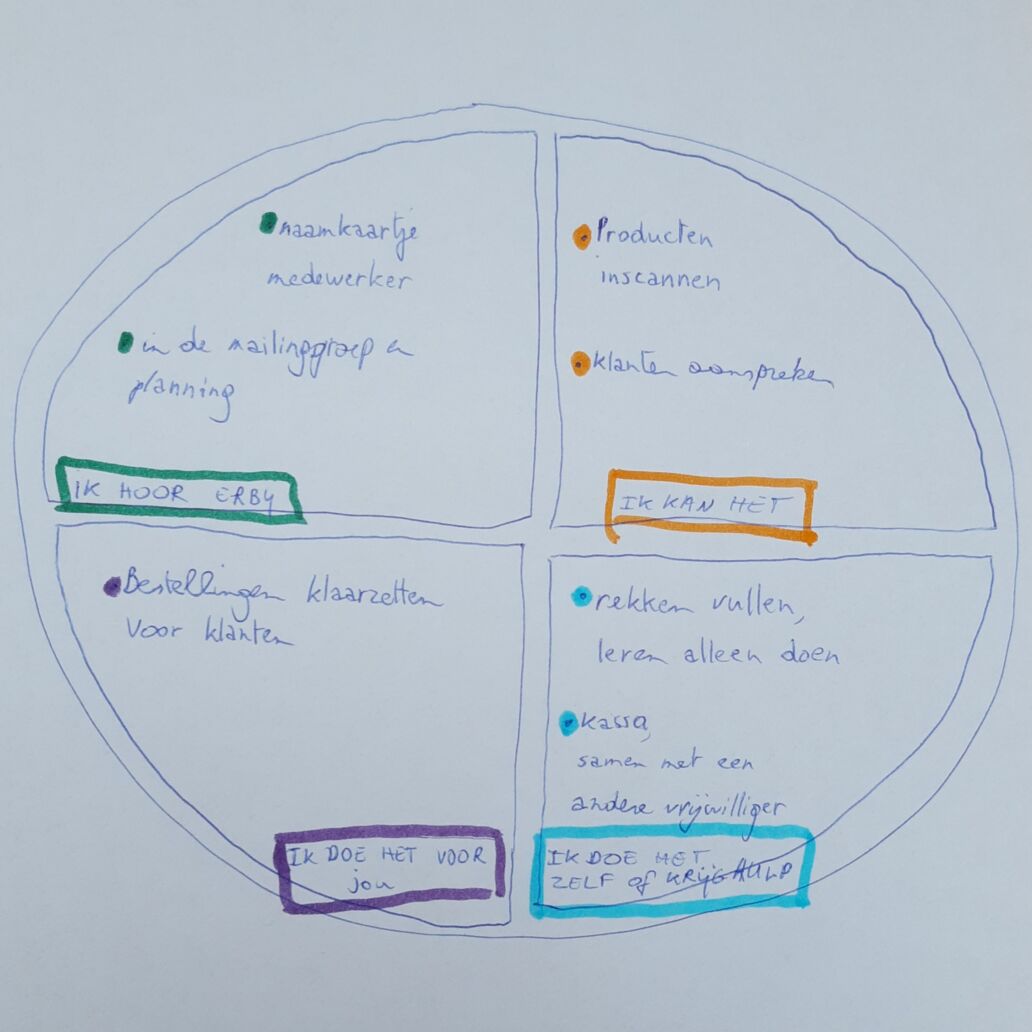 naamkaartje
medewerker
in de mailinggroep en
planning
IK HOOR ERBY
Producten
inscannen
klanten aanspreken
IK KAN HET
Bestellingen klaarzetten
voor klanten
IK DOE HET VOOR
jou
rekken vullen,
leren alleen doen
kassa,
samen met een
andere vrijwilliger
IK DOE HET
ZELF of KRIJG HULP